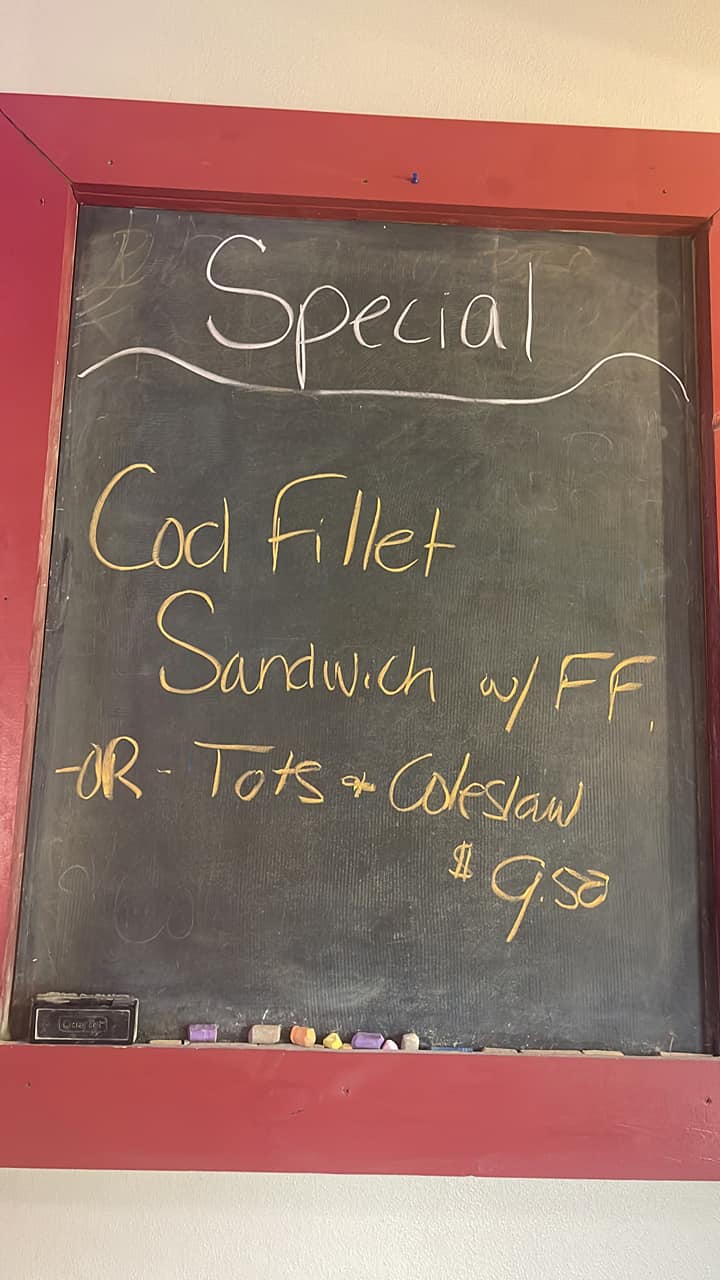 Special
Cod Fillet
Sandwich w/ FF.
-OR- Tots & Coleslaw
$9.50
Quartet